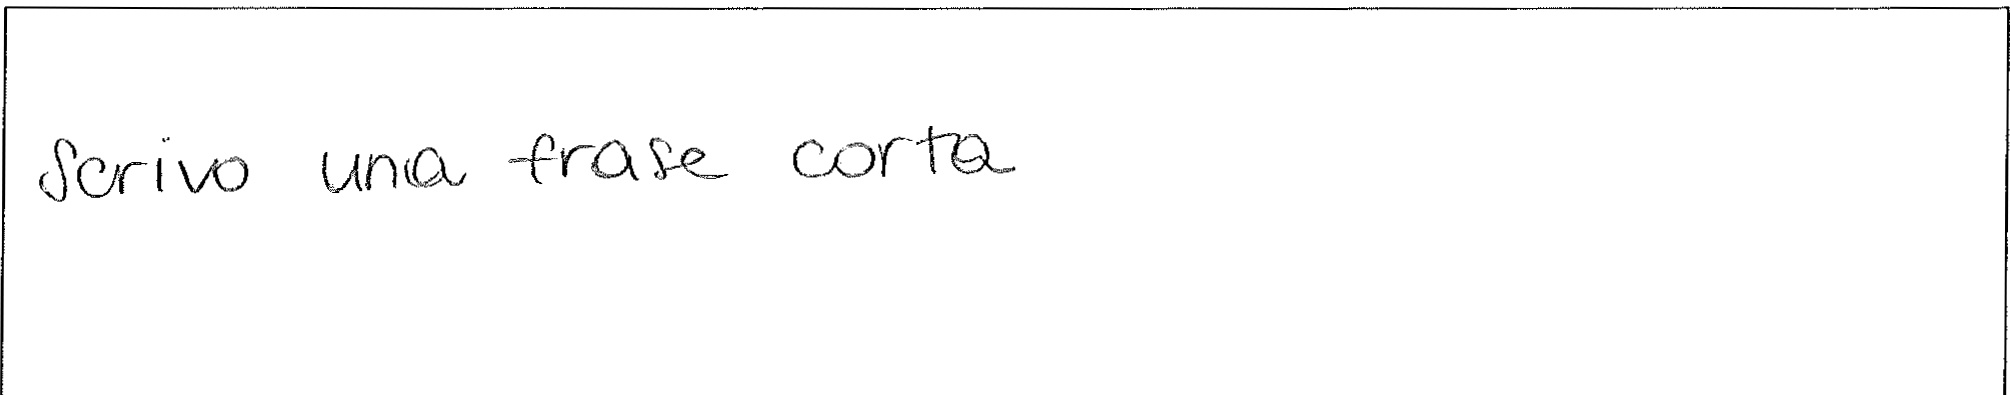 scrivo una frase corta